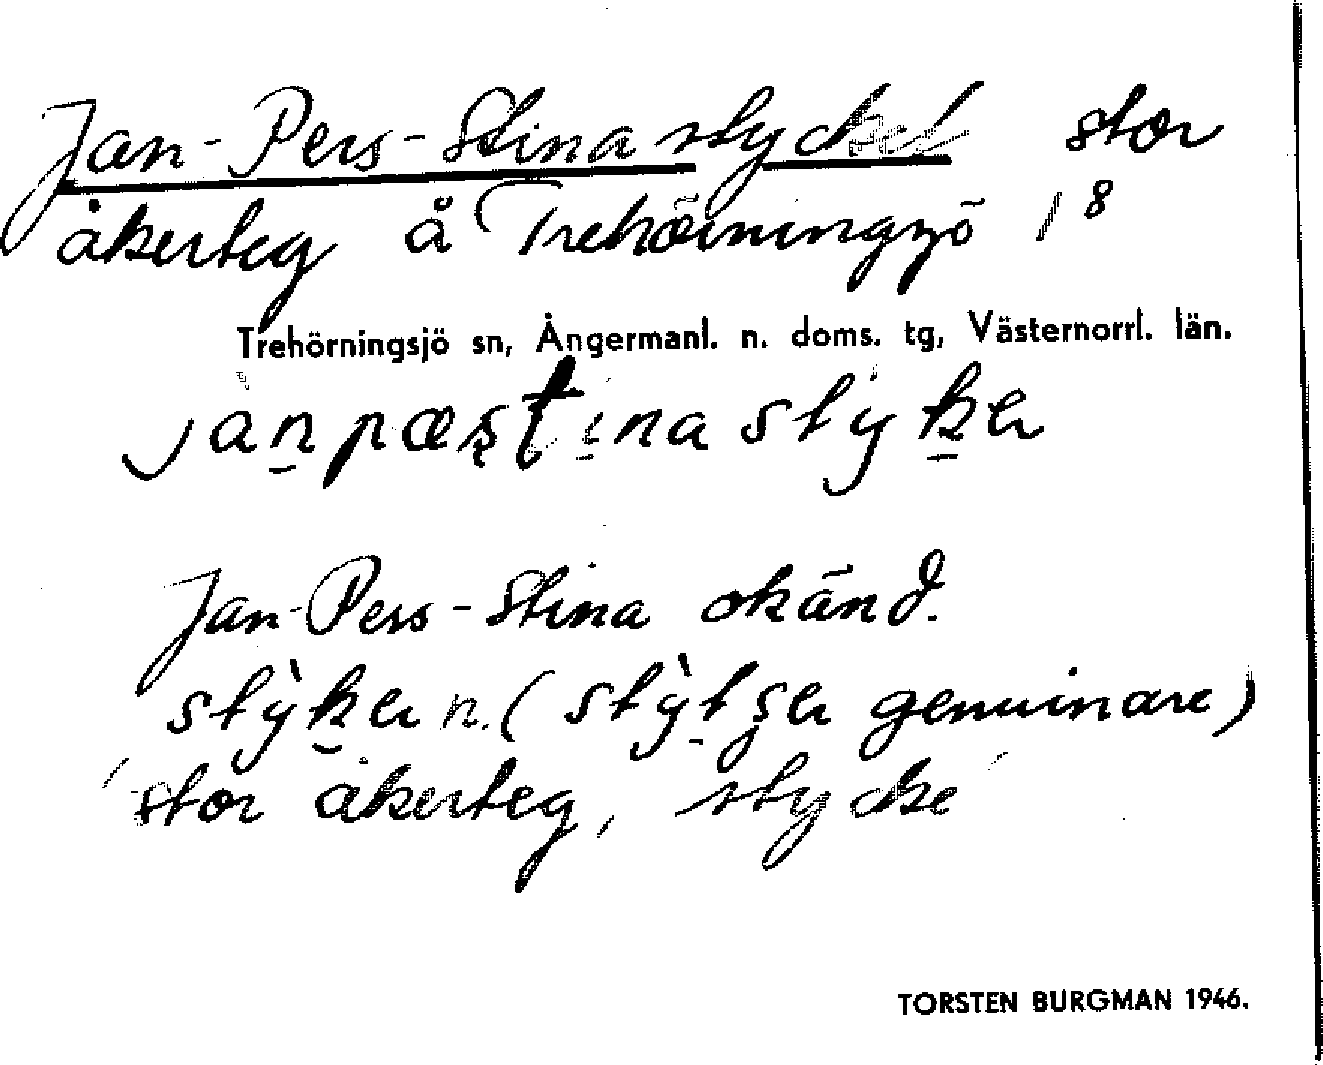 Jan-Pers-Stinastycket stor
åkerteg å Trehörningsjö 1 8
Trehörningsjö sn, Ångermanl. n. doms. tg, Västernorrl. län.
Jan-Pers-Stina okänd.
n. ( genuinare)
'stor åkerteg, stycke'
TORSTEN BURGMAN 1946.